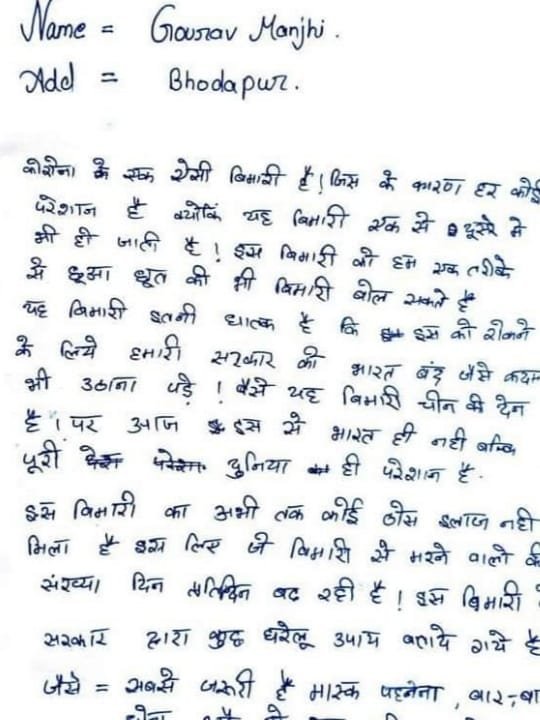 Name = Gourav Manjhi.
Add = Bhodapur.
कोरोना के एक ऐसी बिमारी है! जिस के कारण हर कोई
परेशान है क्योंकि यह बिमारी एक से दूसरे मे
भी हो जाती है! इस बिमारी को हम एक तरीके
से छूआ छूत की भी बिमारी बोल सकते है
यह बिमारी इतनी घातक है कि इस को रोकने
के लिये हमारी सरकार को भारत बंद जैसे कदम
भी उठाना पड़े! वैसे यह बिमारी चीन की देन
है। पर आज इस से भारत ही नही बल्कि
पूरी दुनिया ही परेशान है.
इस बिमारी का अभी तक कोई ठोस इलाज नही
मिला है इस लिए जे बिमारी से मरने वालो की
संख्या दिन बढ रही है! इस बिमारी
सरकार द्वारा कुछ घरेलू उपाय बताये गये है
जैसे = सबसे जरूरी है मास्क पहनेना, बार-बा